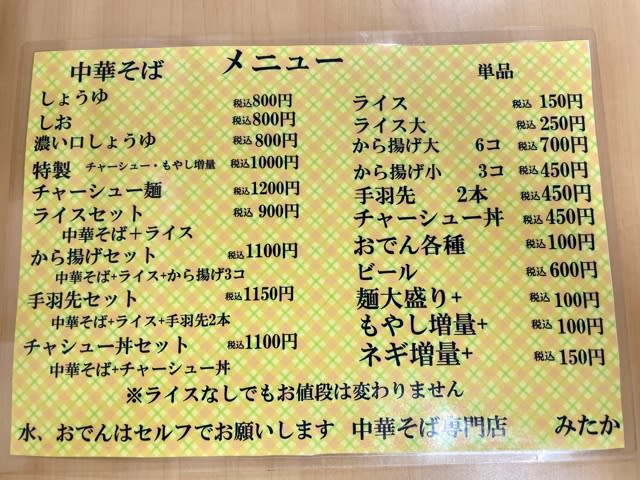 メニュー
中華そば
しょうゆ 税込800円
しお 税込800円
濃い口しょうゆ 税込800円
特製 チャーシュー・もやし増量 税込1000円
チャーシュー麺 税込1200円
ライスセット 税込900円
中華そば＋ライス
から揚げセット 税込1100円
中華そば+ライス+から揚げ3コ
手羽先セット 税込1150円
中華そば+ライス+手羽先2本
チャシュー丼セット 税込1100円
中華そば+チャーシュー丼
単品
ライス 税込150円
ライス大 税込250円
から揚げ大 6コ 税込700円
から揚げ小 3コ 税込450円
手羽先 2本 税込450円
チャーシュー丼 税込450円
おでん各種 税込100円
ビール 税込600円
麺大盛り+ 税込100円
もやし増量+ 税込100円
ネギ増量+ 税込150円
※ライスなしでもお値段は変わりません
水、おでんはセルフでお願いします 中華そば専門店 みたか